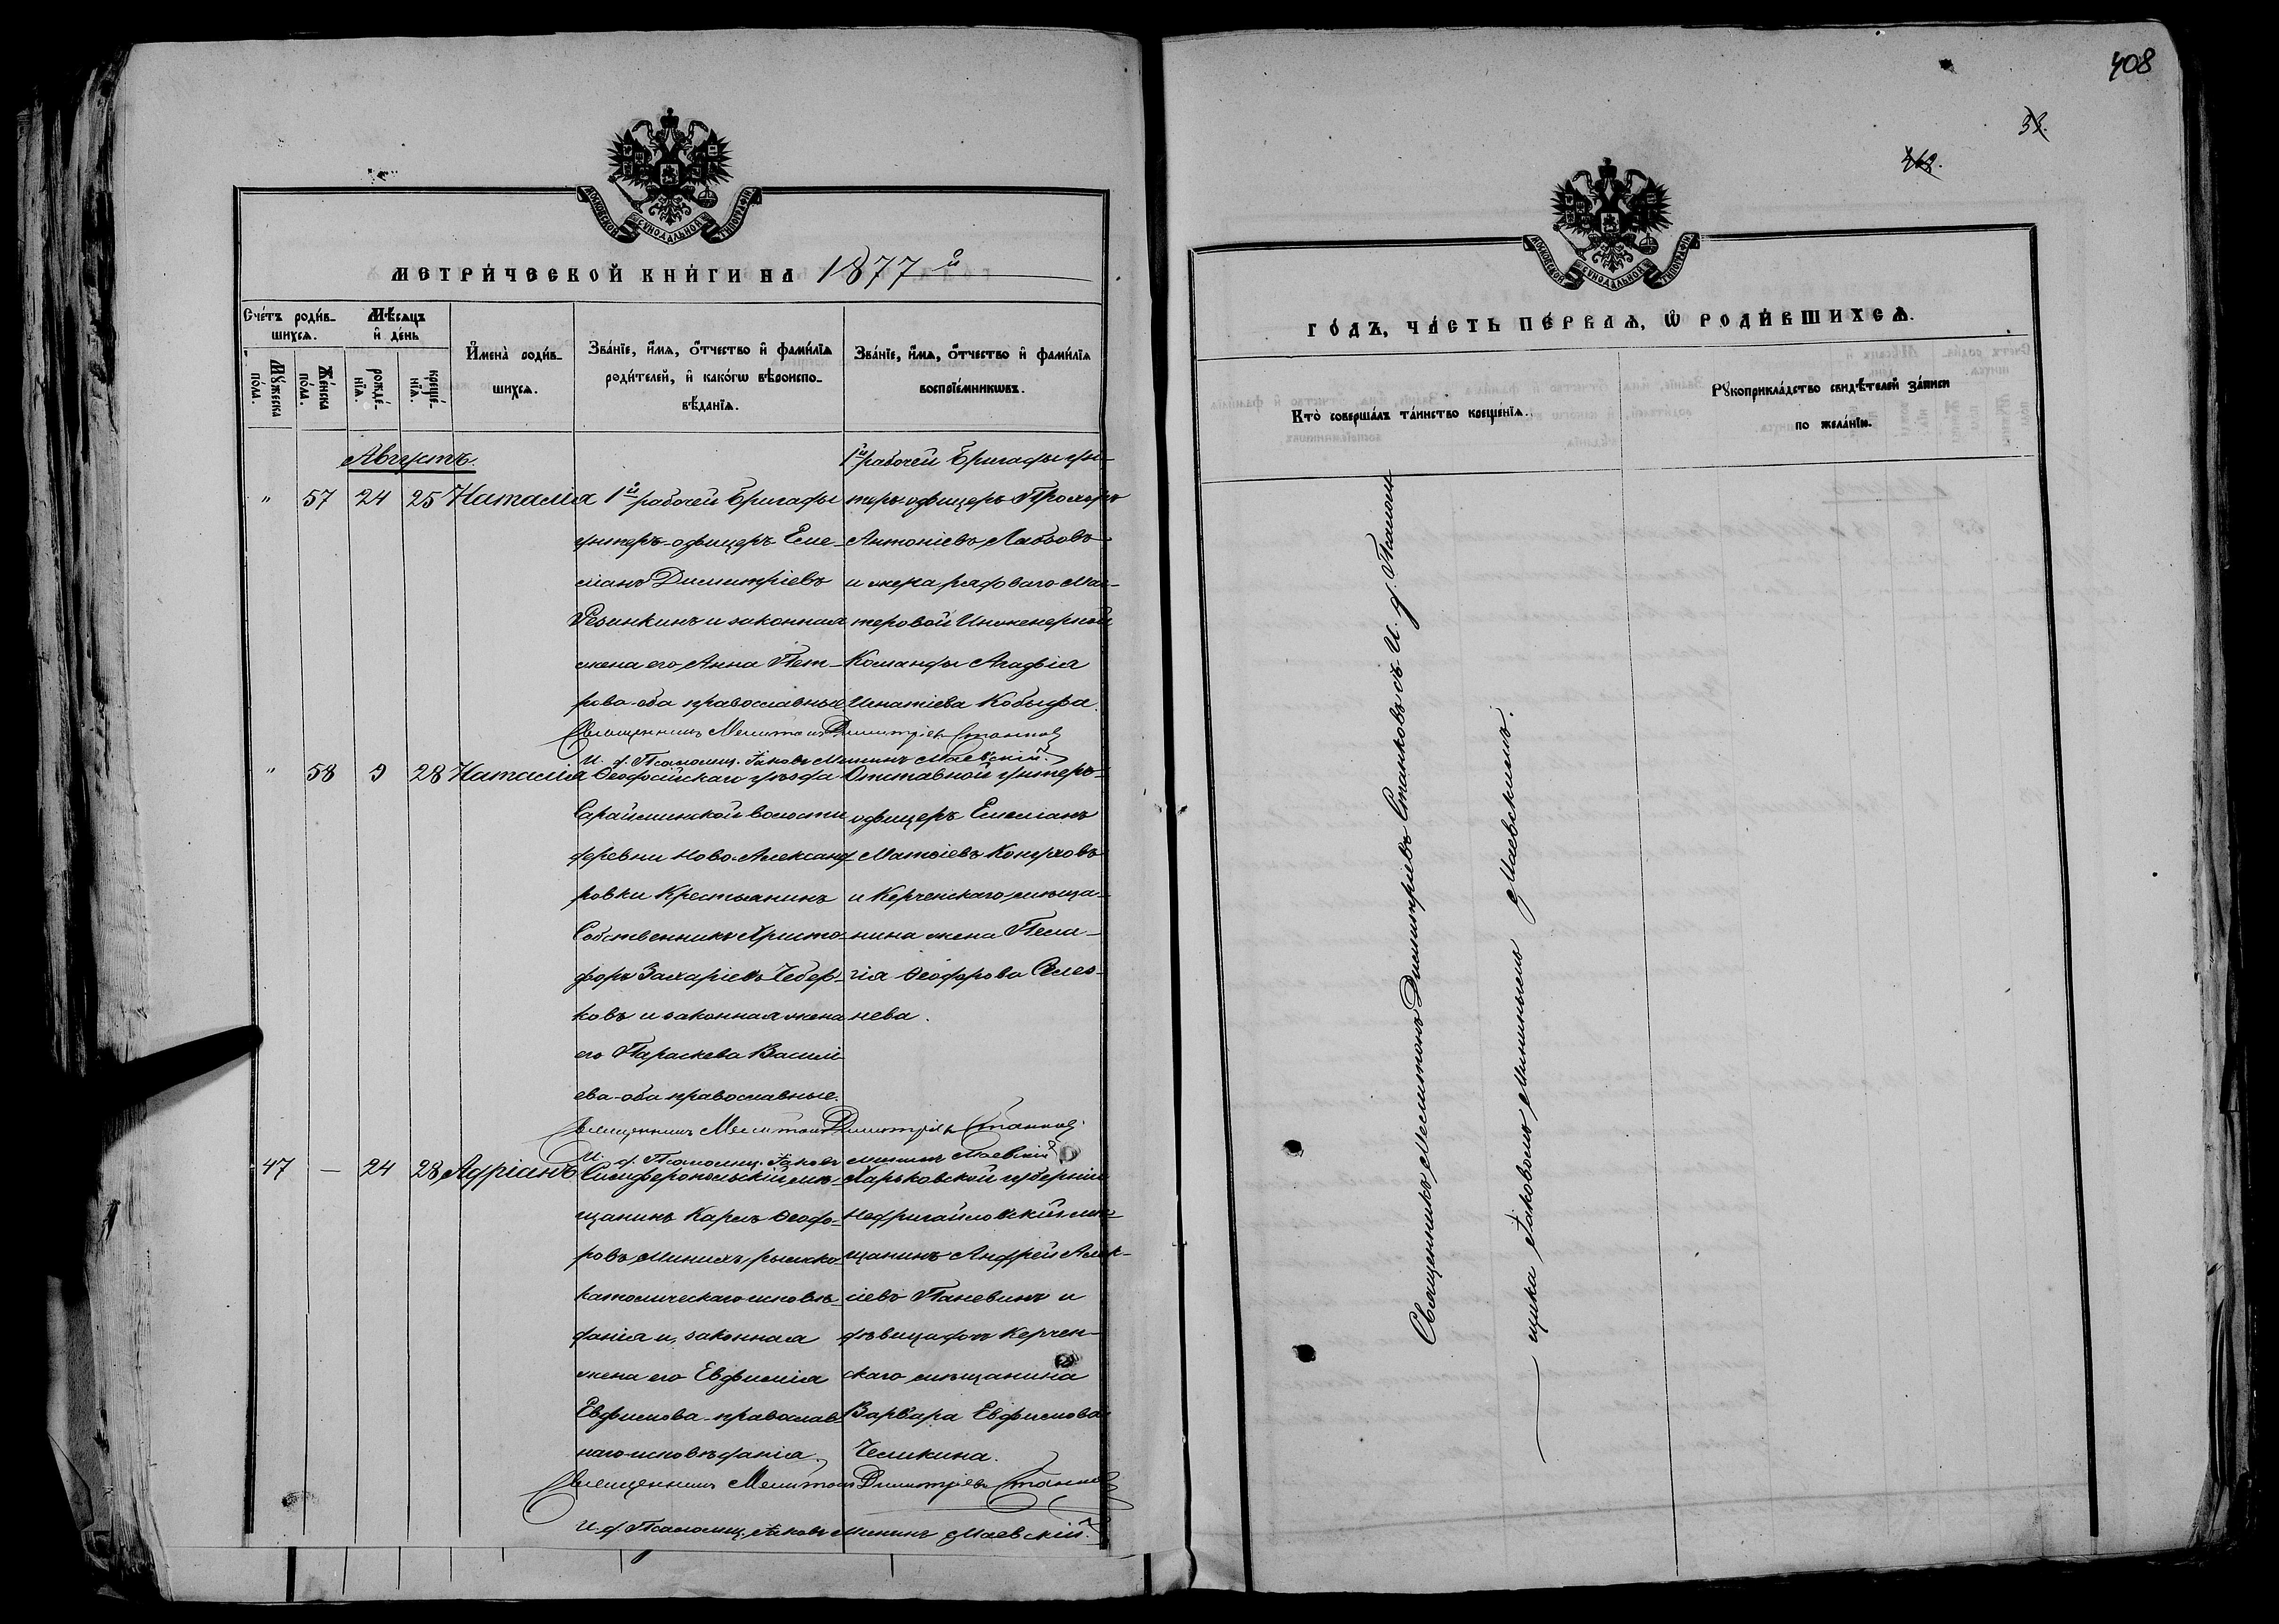 МОСКОВСКОЙ СѴНОДАЛЬНОЙ ТИПОГРАФІИ
МЕТРИ́ЧЕСКОЙ КНИ́ГИ НА 1877й
Сче́тъ роди́вшихсѧ.
Мꙋ́жеска по́ла.
Же́нска по́ла.
Мѣ́сѧцъ и҆ де́нь
рожде́нїѧ.
креще́нїѧ.
И҆мена̀ роди́вшихсѧ.
Зва́нїе, и҆́мѧ, ѻ҆́тчество и҆ фами́лїѧ
роди́телей, и҆ како́гѡ вѣроиспо-
вѣ́данїѧ.
Зва́нїе, и҆́мѧ, ѻ҆́тчество и҆ фами́лїѧ
воспрїе́мникѡвъ.
Августъ.
" 57 24 25 Наталія
1й рабочей бригады
унтеръ-офицеръ Еме-
ліанъ Димитріевъ
Резинкинъ и законная
жена его Анна Пет-
рова-оба православные
1й рабочей бригады ун-
теръ-офицеръ Прохоръ
Антоніевъ Лабзовъ
и жена рядоваго Мас-
теровой Инженерной
Команды Агафія
Игнатіева Кобыфа.
Священникъ Мелитонъ Димитріевъ Станковъ
И. д. Псаломщ. Іаковъ Мининъ Маевскій.
" 58 9 28 Наталія
Ѳеодосійскаго уѣзда
Сарайминской волости
деревни Ново-Александ-
ровки Крестьянинъ
Собственникъ Христо-
форъ Захаріевъ Чебер-
ковъ и законная жена
его Параскева Васили-
ева-оба православные.
Отставной унтеръ-
офицеръ Емеліанъ
Матѳіевъ Конуховъ
и Керченскаго мѣща-
нина жена Пела-
гія Ѳеодорова Семе-
нева.
Священникъ Мелитонъ Димитріевъ Станковъ.
И. д. Псаломщ. Іаковъ Мининъ Маевскій
47 — 24 28 Адріанъ
Симферопольскій мѣ-
щанинъ Карлъ Ѳеодо-
ровъ Минихъ-римско-
католическаго исповѣ-
данія и законная
жена его Евфимія
Евфимова-православ-
наго исповѣданія.
Харьковской губерніи
Недригайловскій мѣ-
щанинъ Андрей Алек-
сіевъ Паневинъ и
дѣвица дочь Керчен-
скаго мѣщанина
Варвара Евфимова
Челикина.
Священникъ Мелитонъ Димитріевъ Станковъ
И. д. Псаломщ. Іаковъ Мининъ Маевскій.
408
33.
МОСКОВСКОЙ СѴНОДАЛЬНОЙ ТИПОГРАФІИ
ГО́ДЪ, ЧА́СТЬ ПЕ́РВАѦ, Ѡ҆ РОДИ́ВШИХСѦ.
Кто̀ соверша́лъ та́инство креще́нїѧ.
Рꙋкоприкла́дство свидѣ́телей за́писи
по жела́нїю.
Священникъ Мелитонъ Димитріевъ Станковъ съ И. д. Псалом-
щика Іаковомъ Мининымъ Маевскимъ.